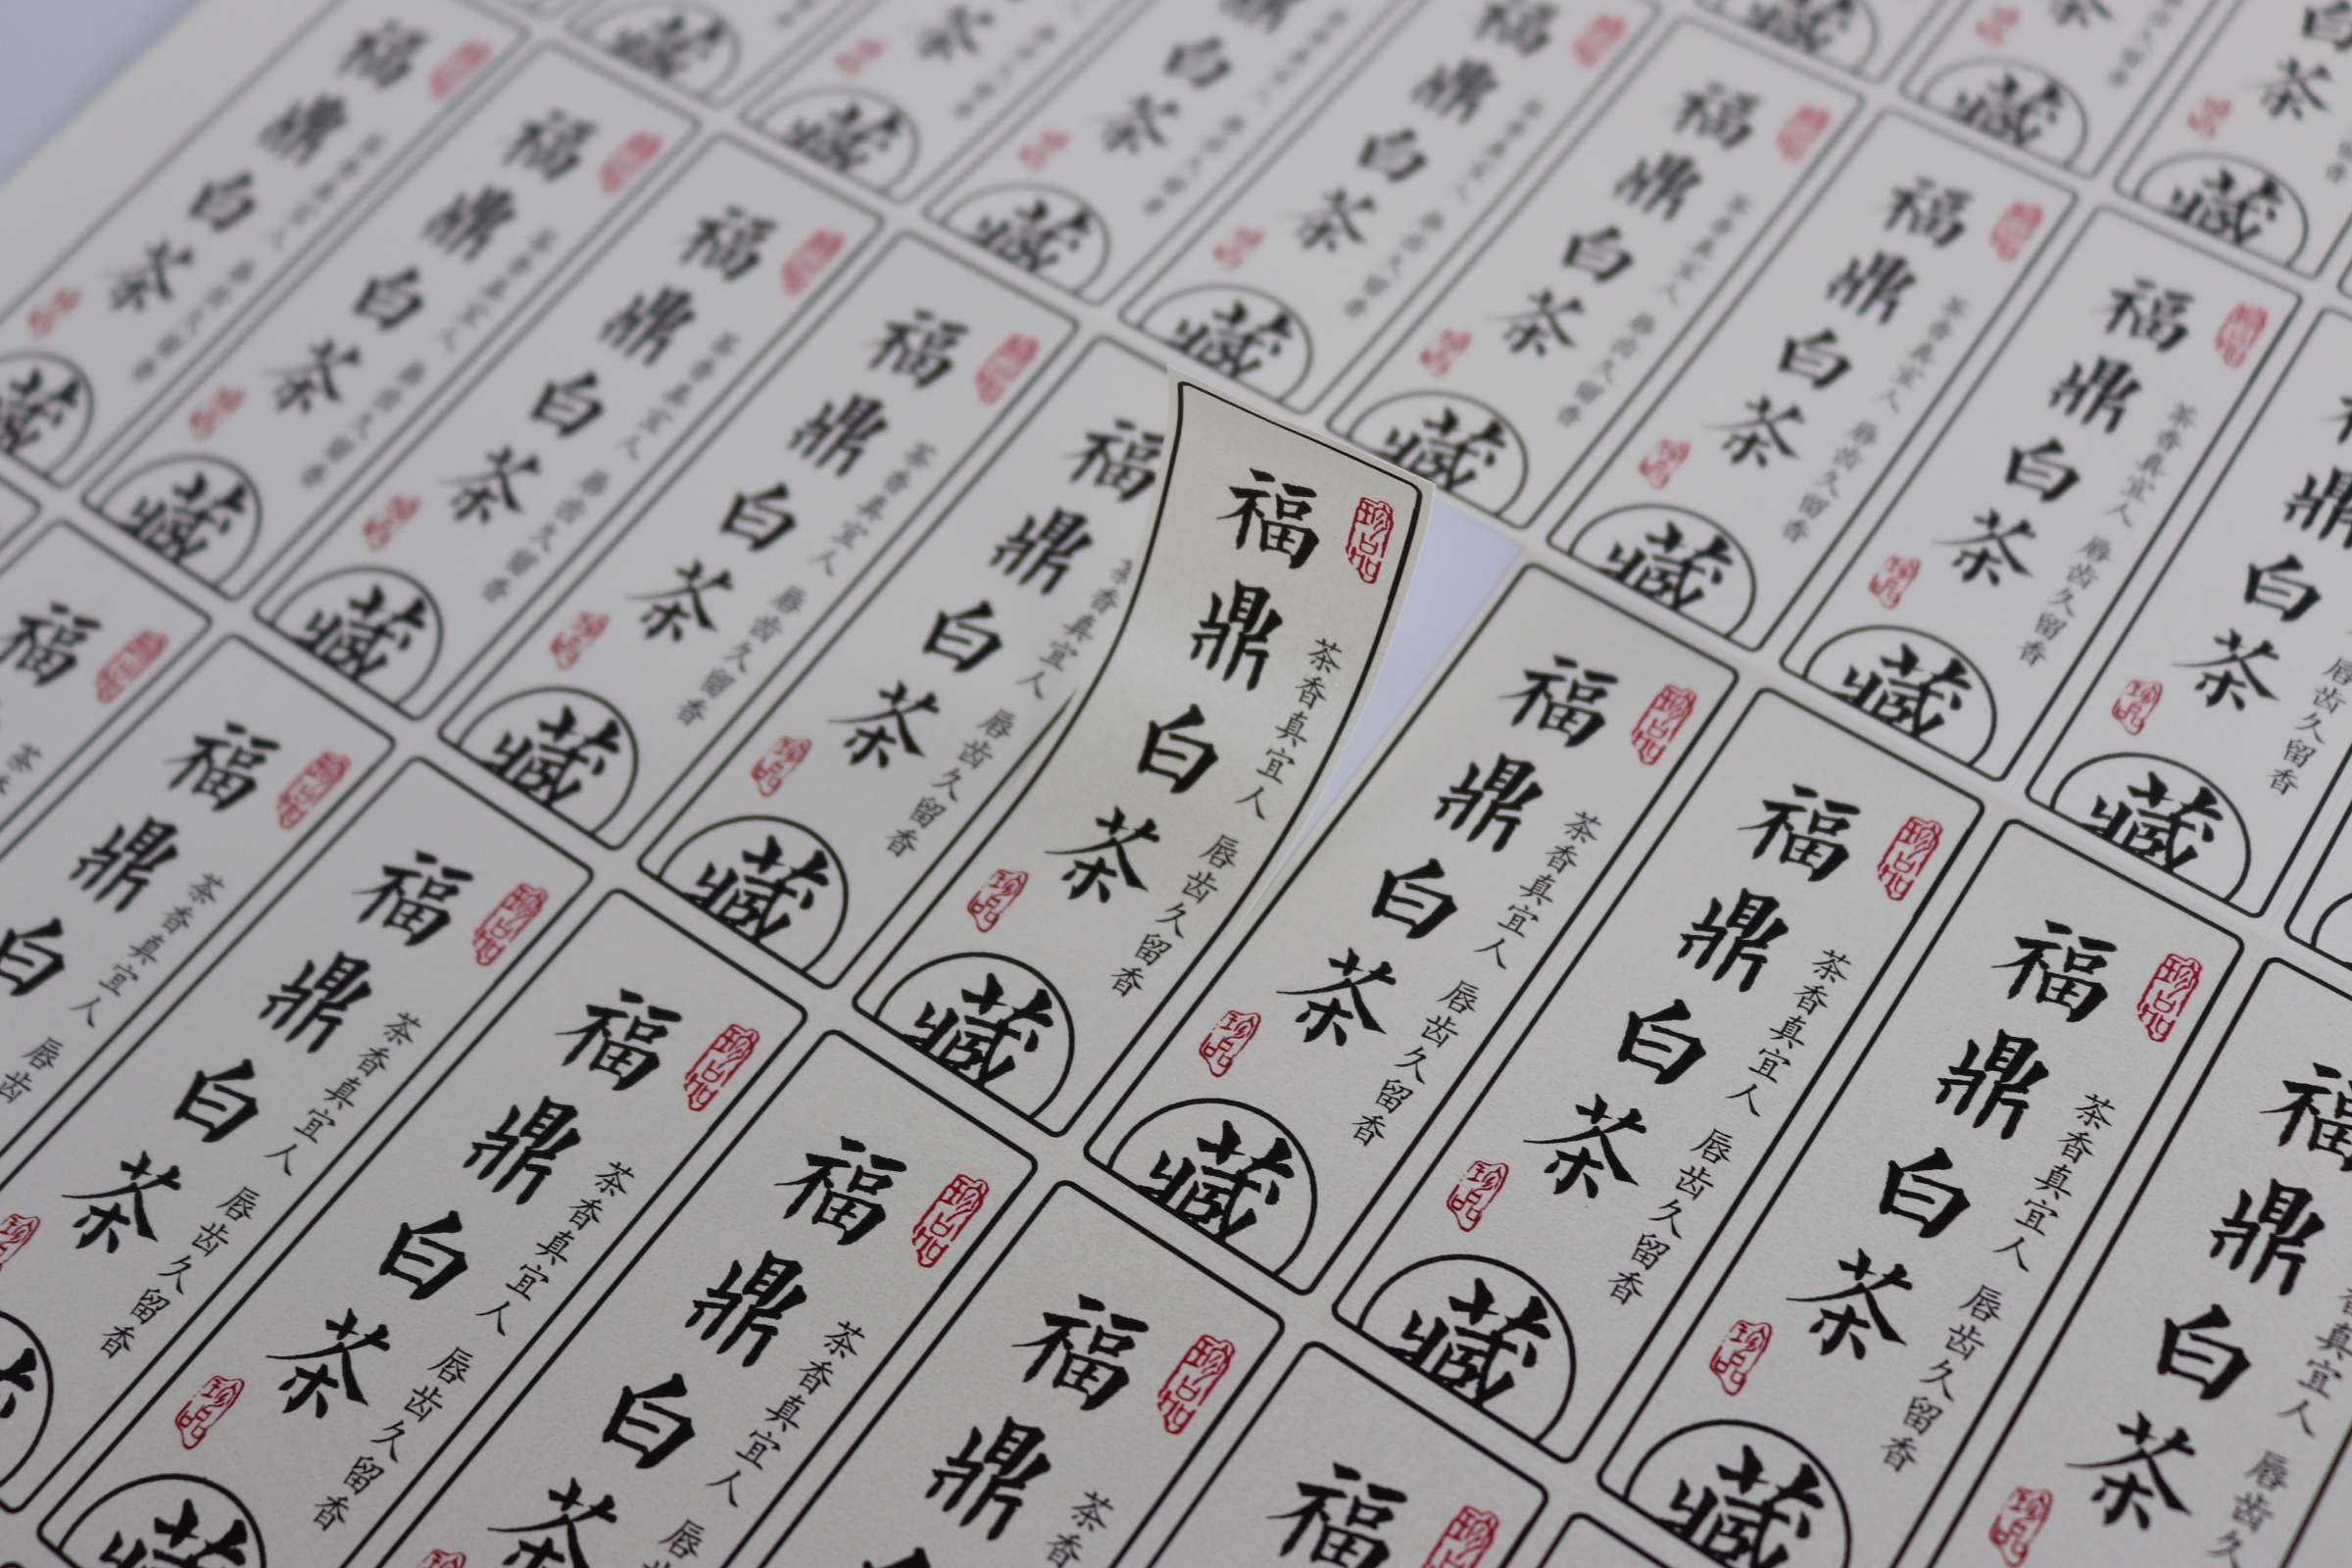 福鼎白茶
珍品
茶香真宜人 唇齿久留香
珍品
藏